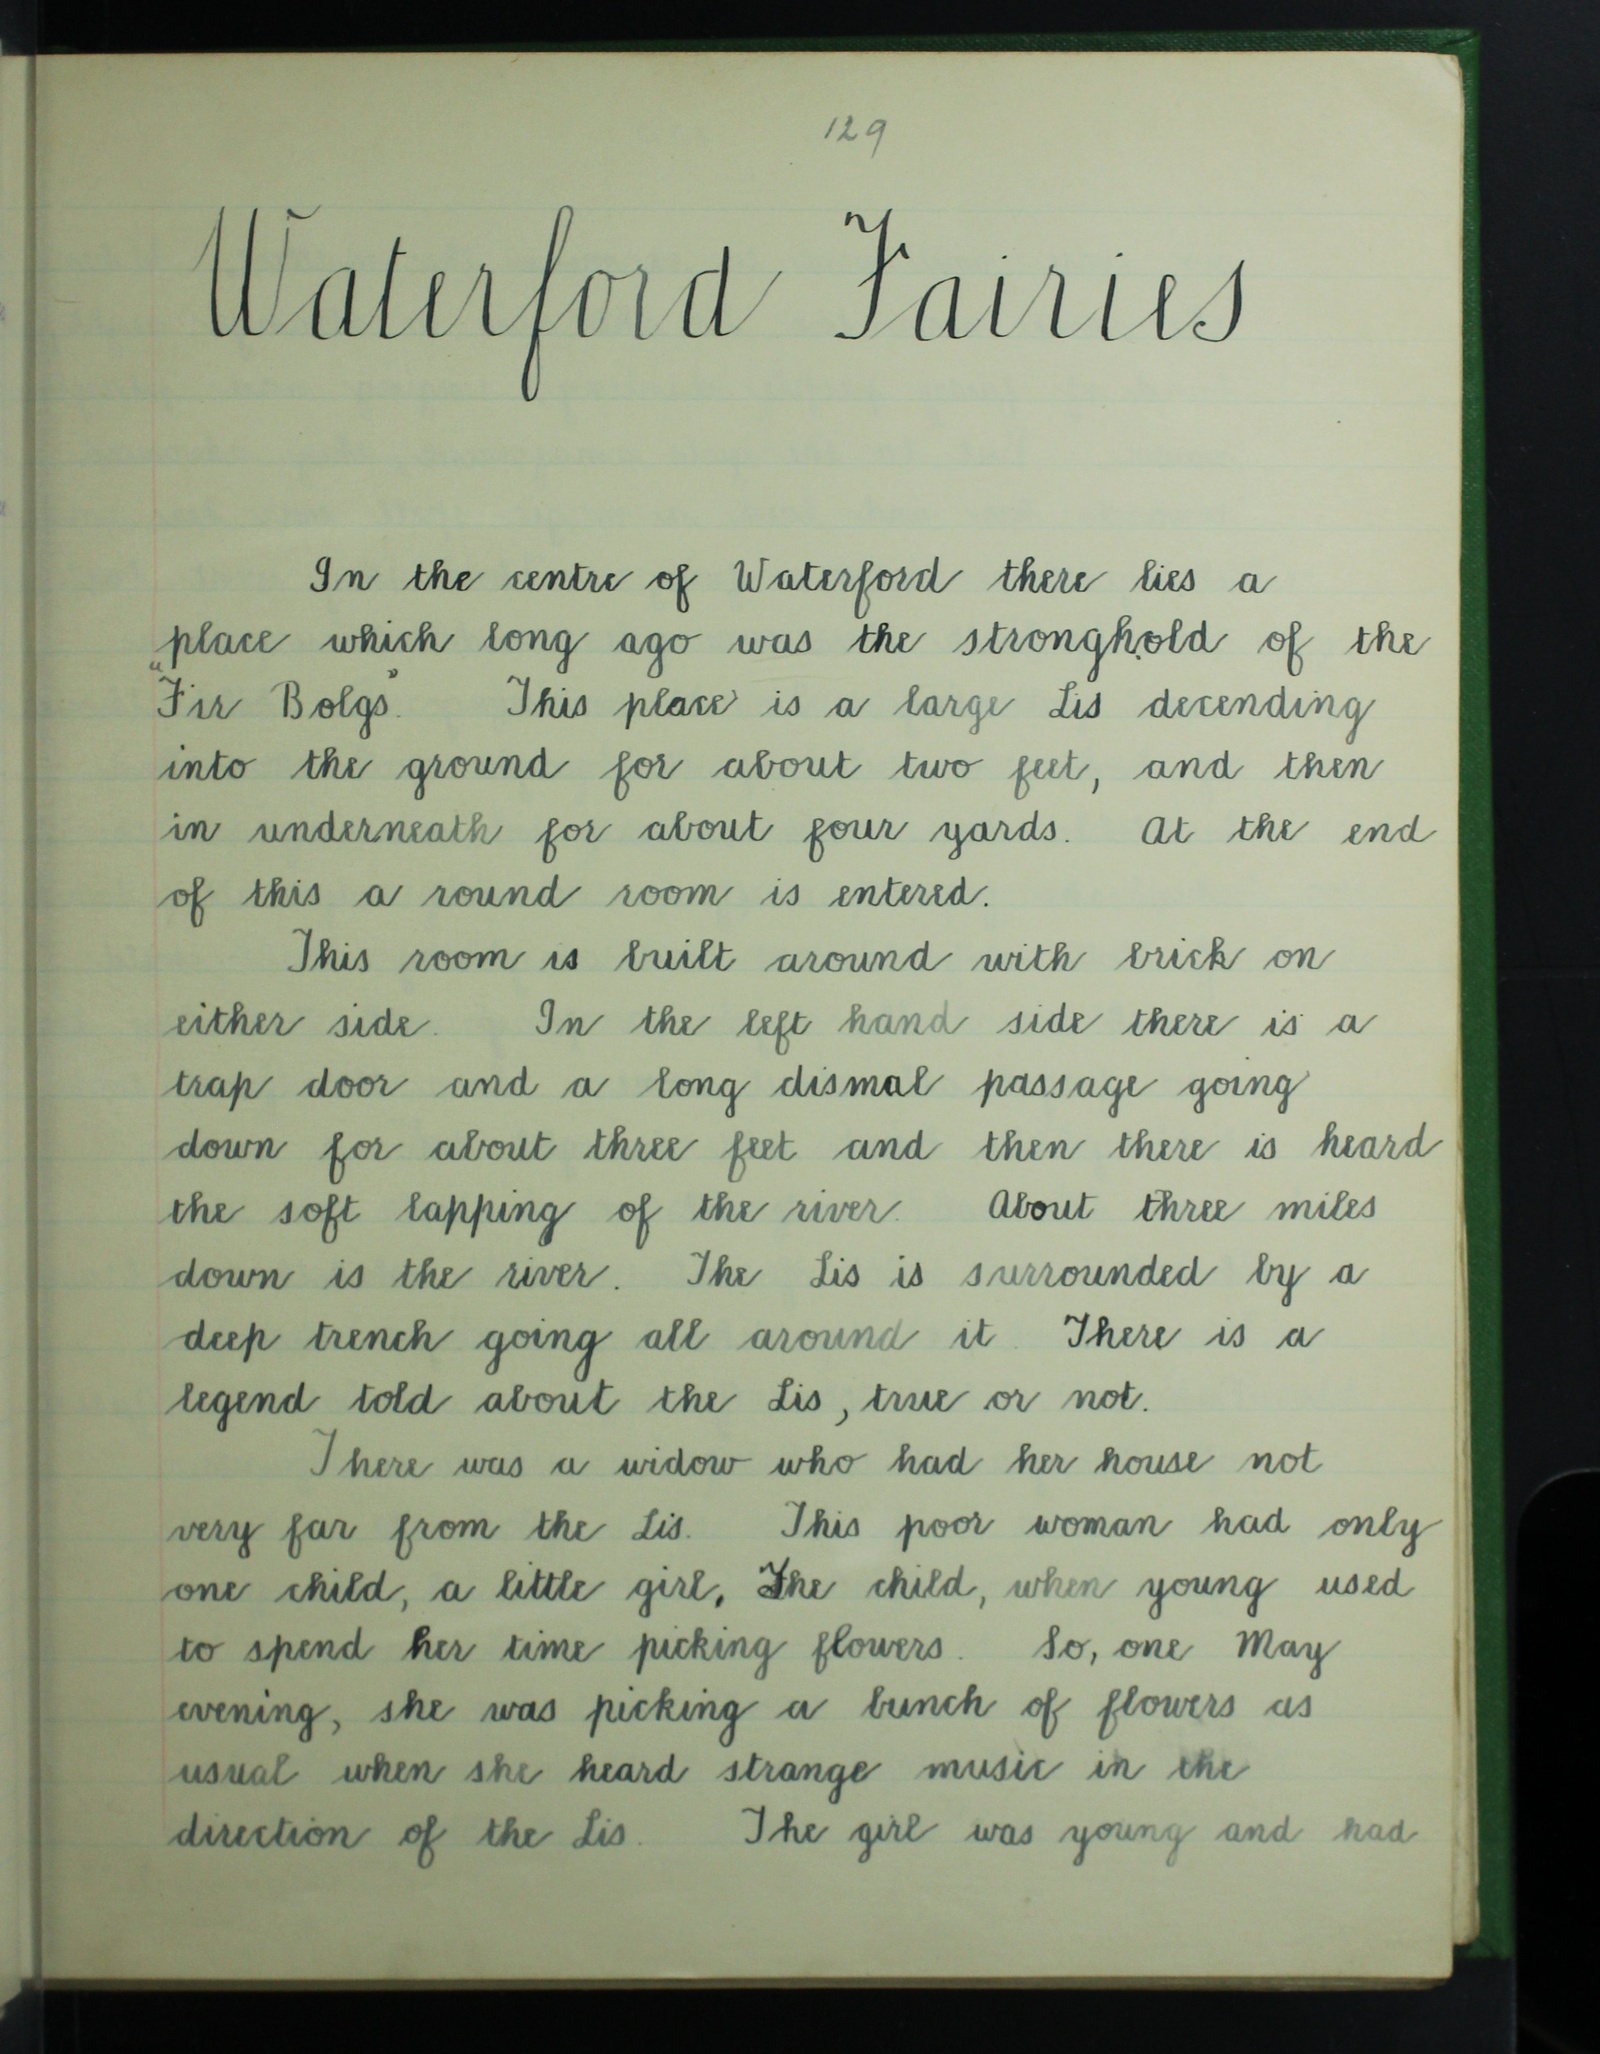 129
Waterford Fairies
In the centre of Waterford there lies a
place which long ago was the stronghold of the
"Fir Bolgs". This place is a large Lis decending
into the ground for about two feet, and then
in underneath for about four yards. At the end
of this a round room is entered.
This room is built around with brick on
either side. In the left hand side there is a
trap door and a long dismal passage going
down for about three feet and then there is heard
the soft lapping of the river. About three miles
down is the river. The Lis is surrounded by a
deep trench going all around it. There is a
legend told about the Lis, true or not.
There was a widow who had her house not
very far from the Lis. This poor woman had only
one child, a little girl. The child, when young used
to spend her time picking flowers. So, one May
evening, she was picking a bunch of flowers as
usual when she heard strange music in the
direction of the Lis. The girl was young and had